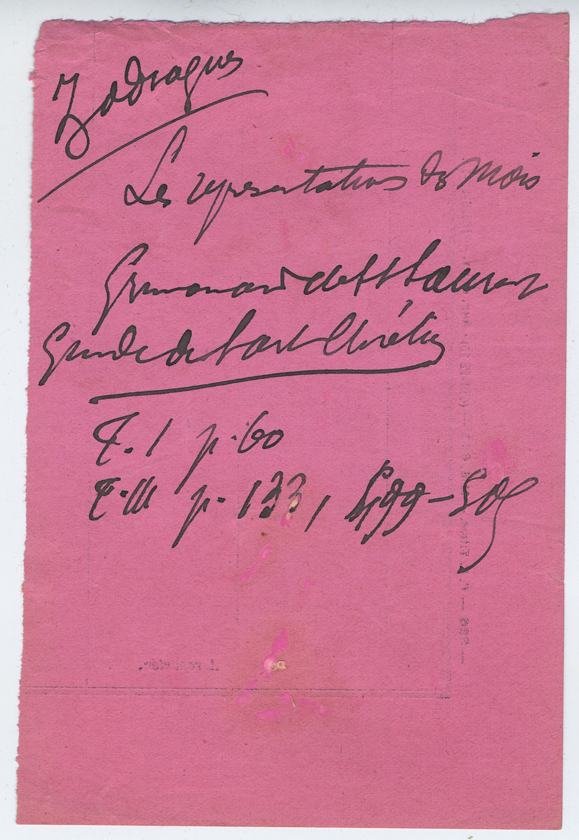 Zodiaques
Les représentations des Mois
Grimouard de St Laurent
Guide de l'art Chrétien
T. I p. 60
T. III p. 133, 499-505